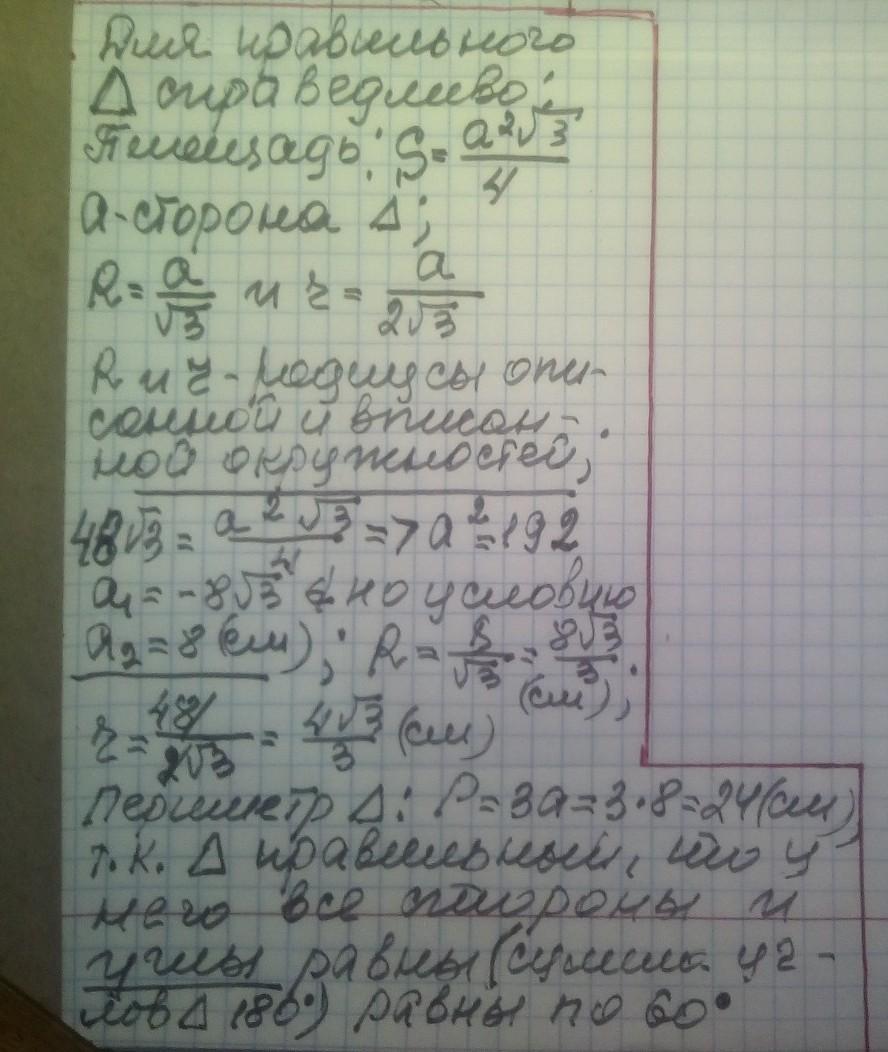 Для правильного
Δ справедливо:
Площадь: S = a²√3 / 4
a - сторона Δ;
R = a/√3 и r = a/2√3
R и r - радиусы опи-
санной и вписан-
ной окружностей;
48√3 = a²√3 / 4 => a² = 192
a₁ = -8√3 ∉ по условию
a₂ = 8 (см); R = 8/√3 = 8√3/3 (см);
r = 8/2√3 = 4√3/3 (см)
Периметр Δ: P = 3a = 3·8 = 24 (см),
т.к. Δ правильный, то у
него все стороны и
углы равны (сумма уг-
лов Δ 180°) равны по 60°